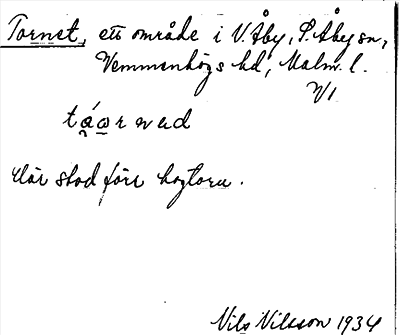 Tornet, ett område i V. Åby, S. Åby sn,
Vemmenhögs hd, Malm. l.
Där stod förr högtorn.
Nils Nilsson 1934